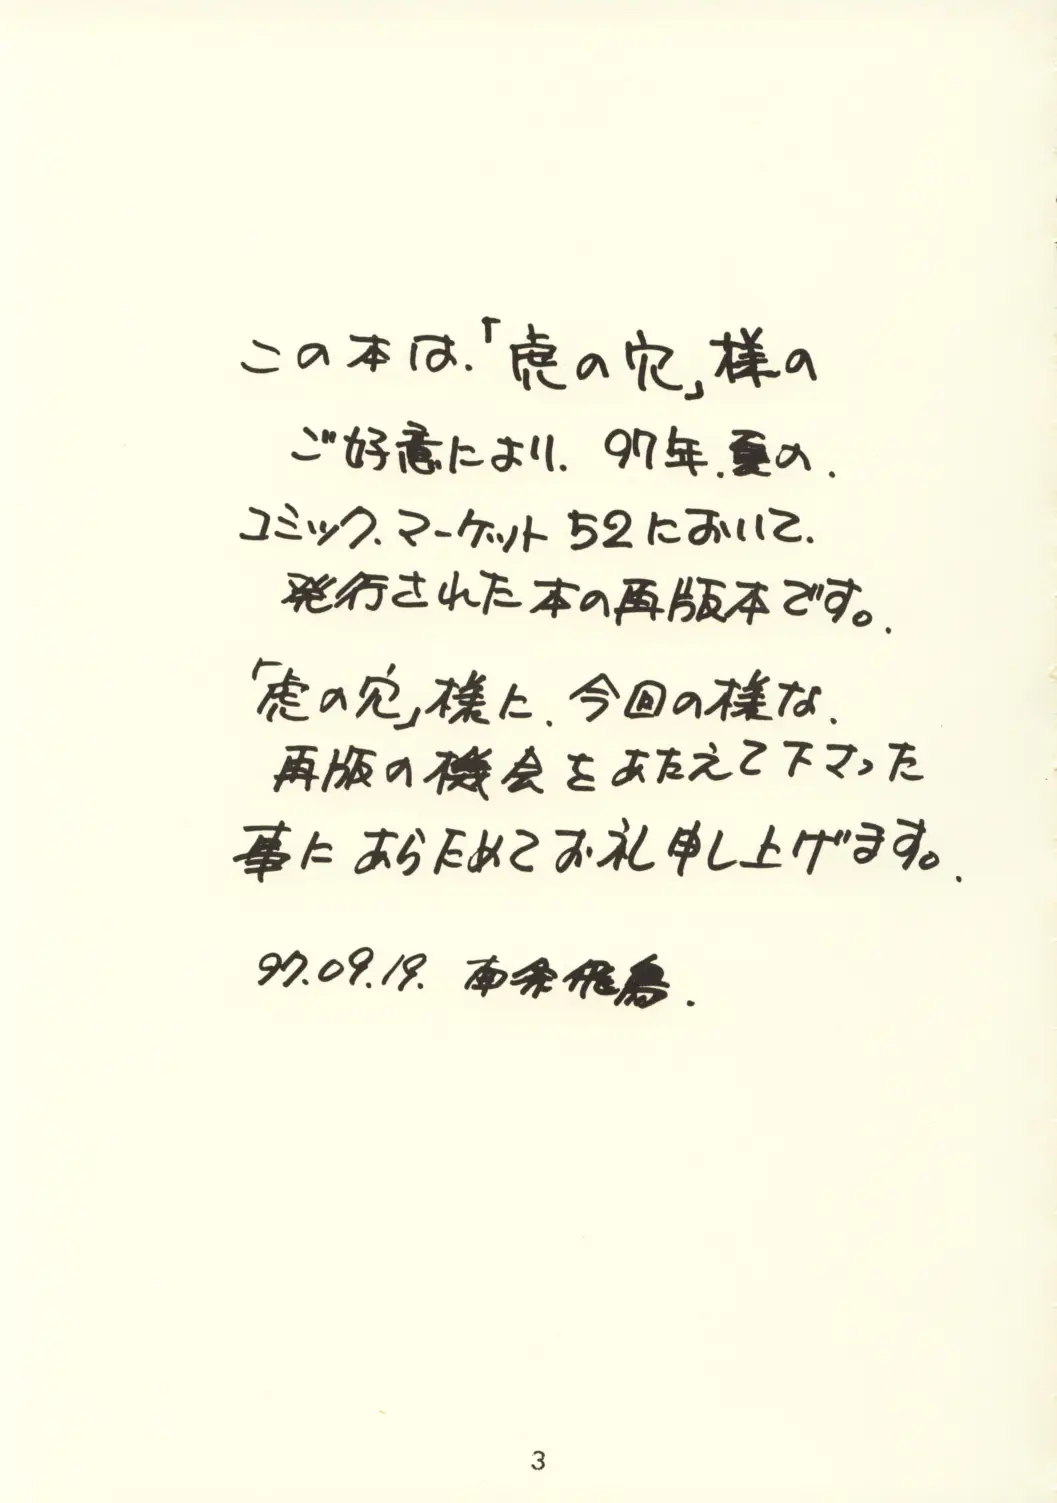 この本は、「虎の穴」様の
ご好意により、97年、夏の、
コミック、マーケット52において、
発行された本の再版本です。
「虎の穴」様に、今回の様な、
再版の機会をあたえて下さった
事にあらためてお礼申し上げます。
97.09.19. 南 飛鳥.
3